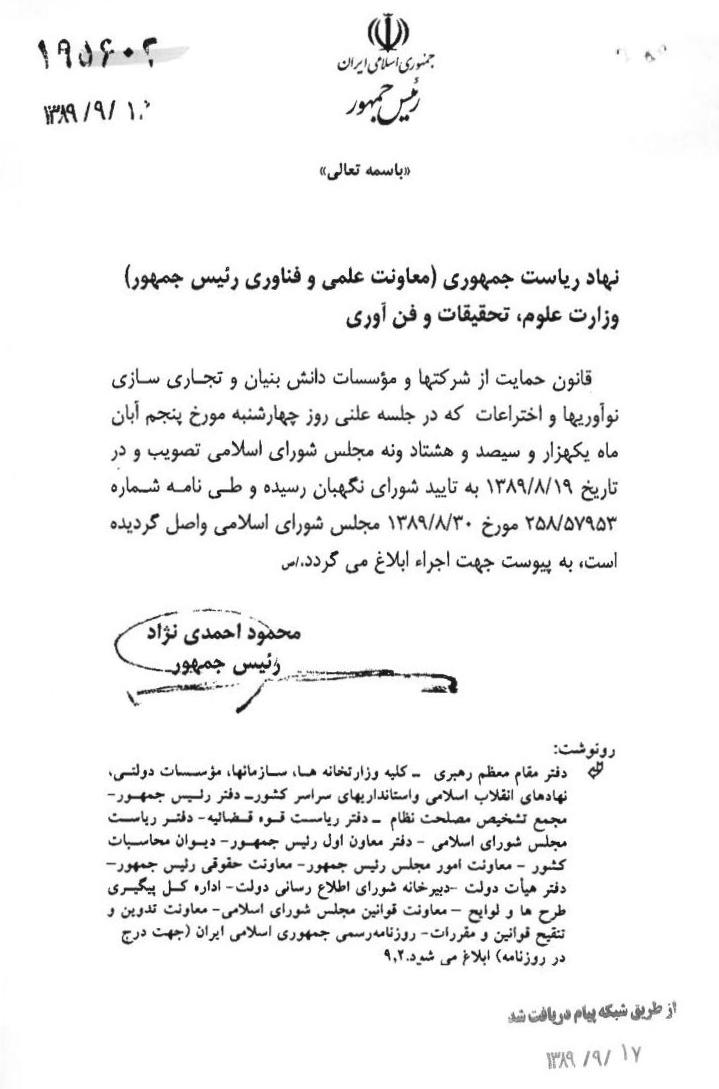 ۱۹۵۶۰۲
۱۳۸۹/۹/۱۰
جمهوری اسلامی ایران
رئیس جمهور
«باسمه تعالی»
نهاد ریاست جمهوری (معاونت علمی و فناوری رئیس جمهور)
وزارت علوم، تحقیقات و فن آوری
قانون حمایت از شرکتها و مؤسسات دانش بنیان و تجاری سازی
نوآوریها و اختراعات که در جلسه علنی روز چهارشنبه مورخ پنجم آبان
ماه یکهزار و سیصد و هشتاد ونه مجلس شورای اسلامی تصویب و در
تاریخ ۱۳۸۹/۸/۱۹ به تایید شورای نگهبان رسیده و طی نامه شماره
۲۵۸/۵۷۹۵۳ مورخ ۱۳۸۹/۸/۳۰ مجلس شورای اسلامی واصل گردیده
است، به پیوست جهت اجراء ابلاغ می گردد./س
محمود احمدی نژاد
رئیس جمهور
رونوشت:
دفتر مقام معظم رهبری – کلیه وزارتخانه ها، سازمانها، مؤسسات دولتی،
نهادهای انقلاب اسلامی واستانداریهای سراسر کشور– دفتر رئیس جمهور–
مجمع تشخیص مصلحت نظام – دفتر ریاست قوه قضائیه– دفتر ریاست
مجلس شورای اسلامی – دفتر معاون اول رئیس جمهور– دیوان محاسبات
کشور – معاونت امور مجلس رئیس جمهور– معاونت حقوقی رئیس جمهور–
دفتر هیأت دولت –دبیرخانه شورای اطلاع رسانی دولت– اداره کل پیگیری
طرح ها و لوایح – معاونت قوانین مجلس شورای اسلامی– معاونت تدوین و
تنقیح قوانین و مقررات– روزنامه‌رسمی جمهوری اسلامی ایران (جهت درج
در روزنامه) ابلاغ می شود.۹,۲
از طریق شبکه پیام دریافت شد
۱۳۸۹/۹/۱۷